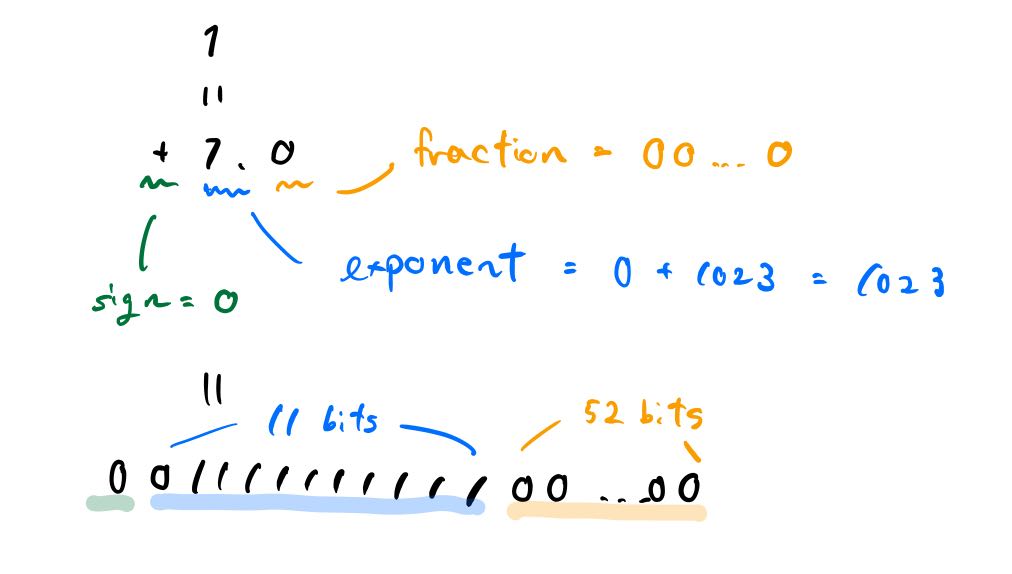 1
||
+ 1.0
fraction = 00...0
exponent = 0 + 1023 = 1023
sign = 0
||
11 bits 52 bits
0 01111111111 00...00